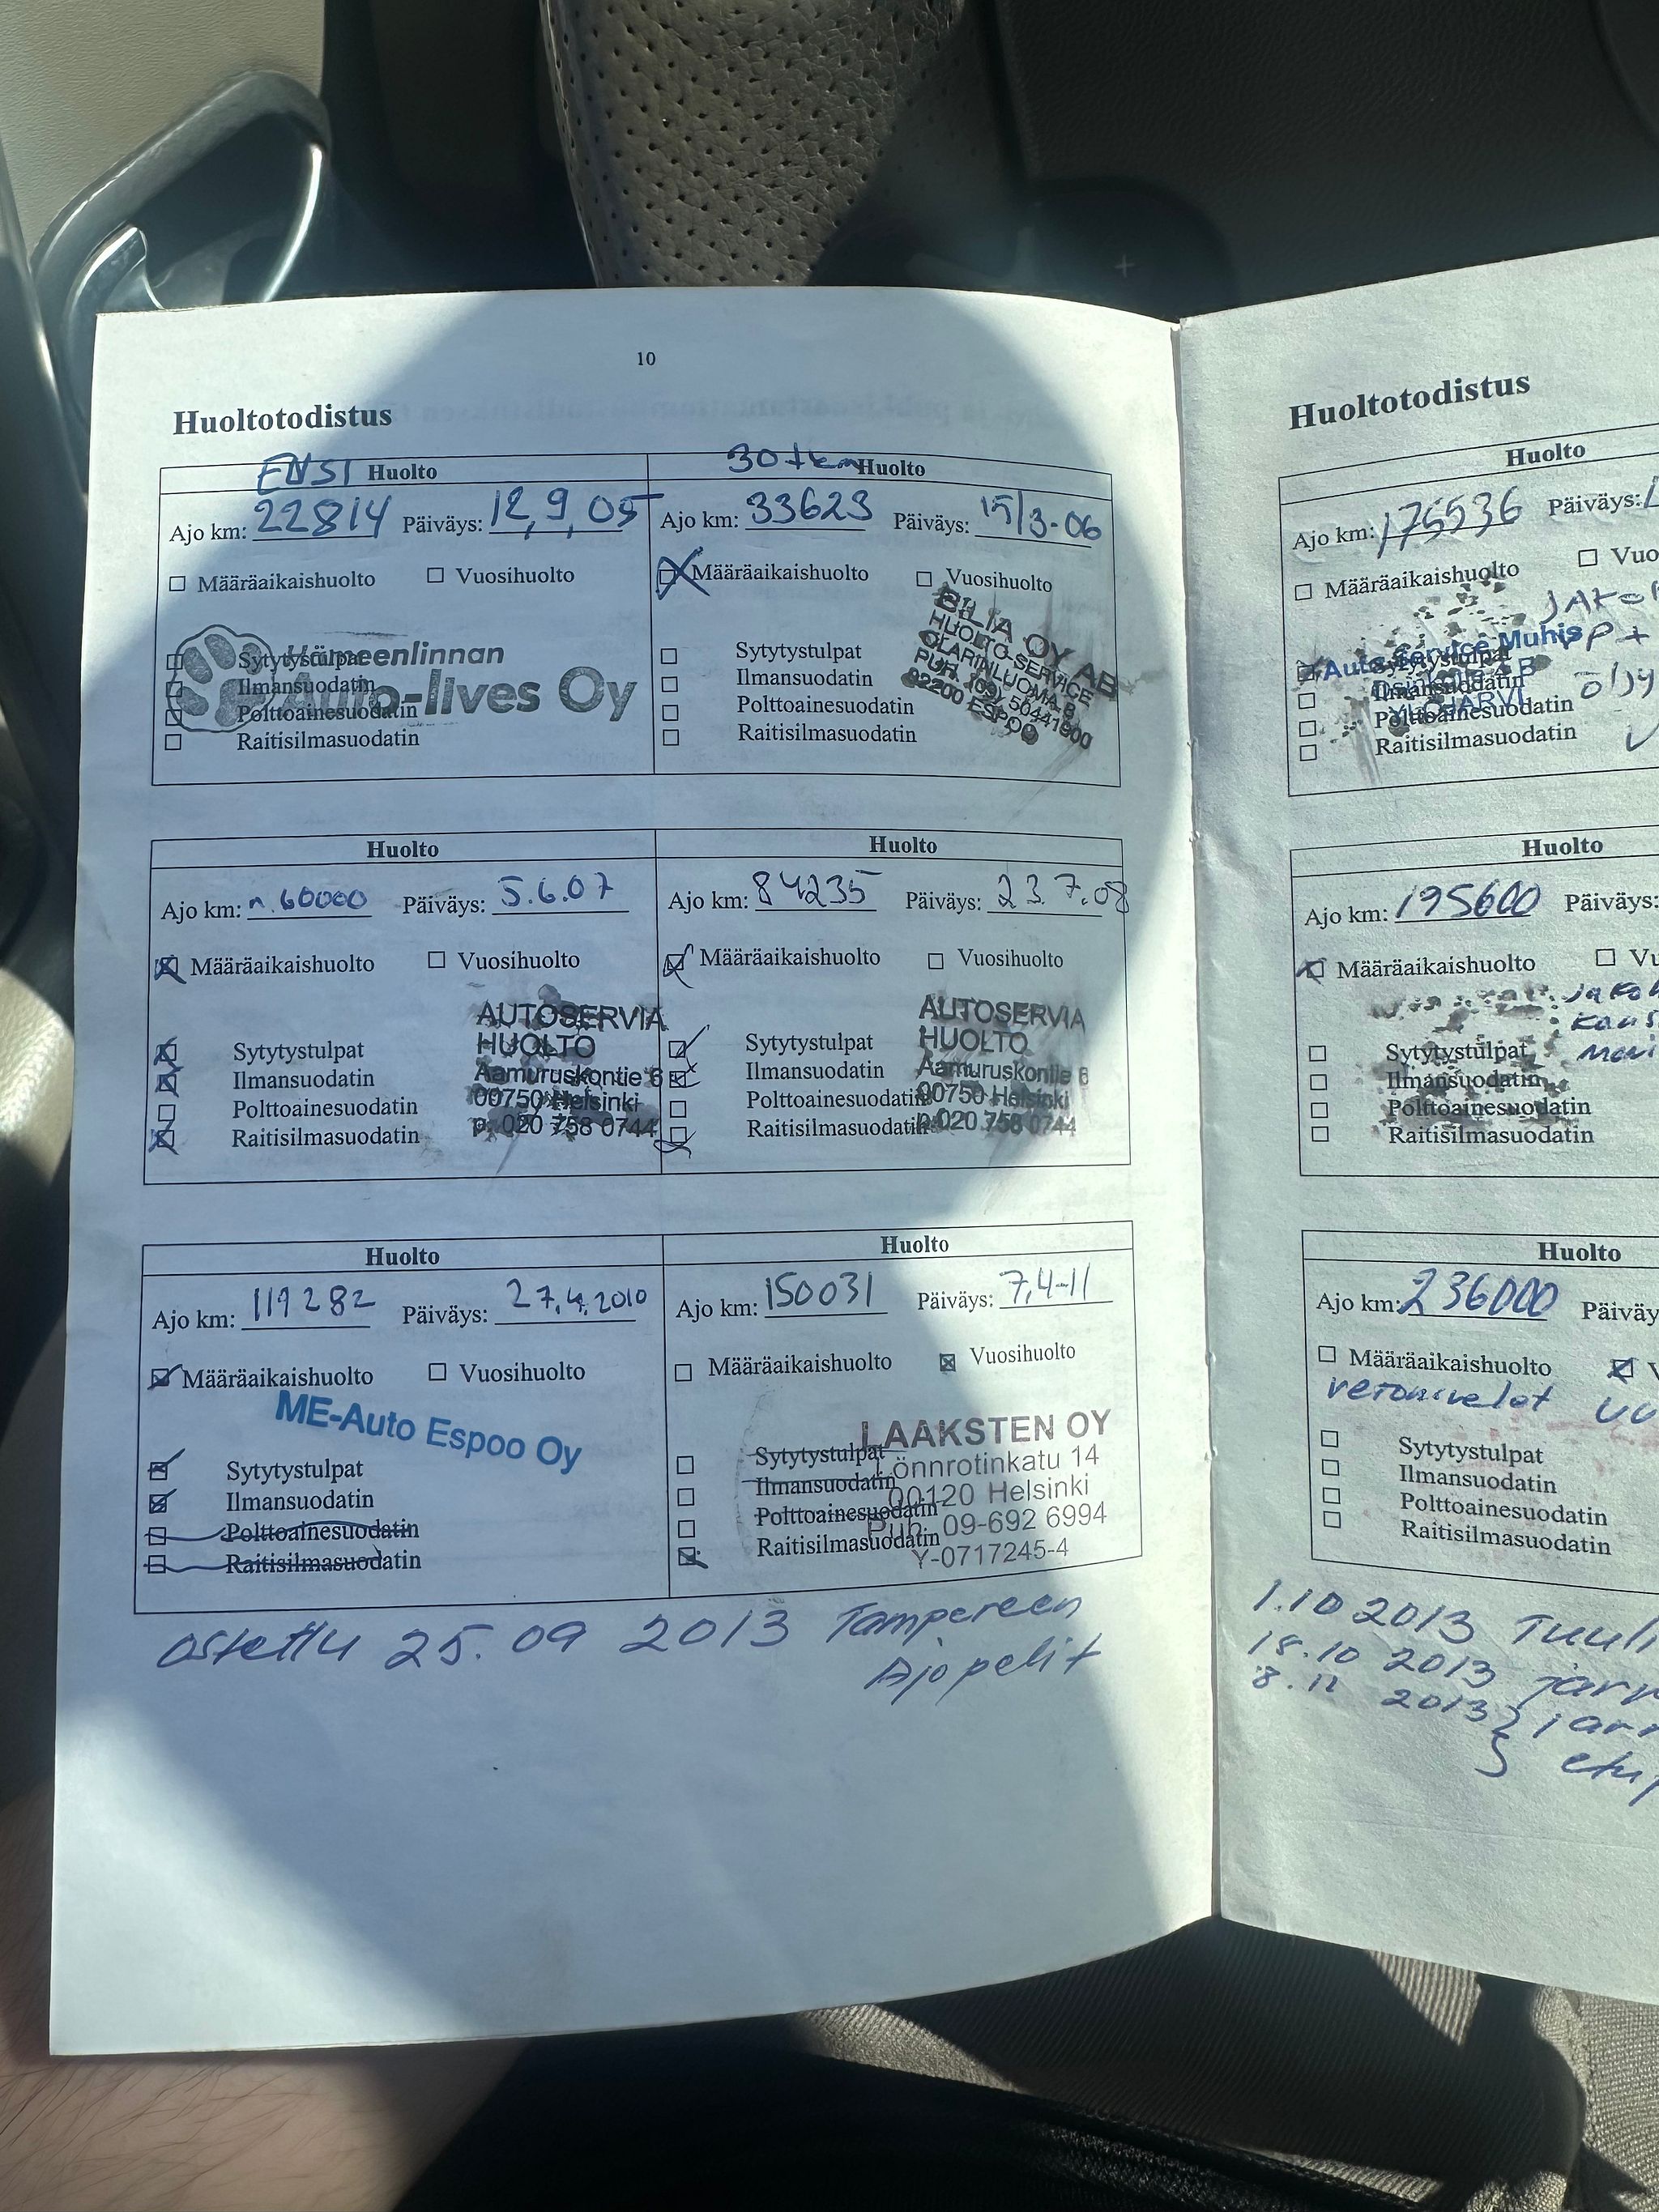 10
Huoltotodistus
ENSI Huolto
Ajo km: 22814 Päiväys: 12,9,05
Määräaikaishuolto Vuosihuolto
Hämeenlinnan
Auto-lives Oy
Sytytystulpat
Ilmansuodatin
Polttoainesuodatin
Raitisilmasuodatin
30 tkm Huolto
Ajo km: 33623 Päiväys: 15/3-06
Määräaikaishuolto Vuosihuolto
Sytytystulpat
Ilmansuodatin
Polttoainesuodatin
Raitisilmasuodatin
BILIA OY AB
HUOLTO-SERVICE
OLARINLUOMA 8
PUH. (09) 50441900
02200 ESPOO
Huolto
Ajo km: n. 60000 Päiväys: 5.6.07
Määräaikaishuolto Vuosihuolto
Sytytystulpat
Ilmansuodatin
Polttoainesuodatin
Raitisilmasuodatin
AUTOSERVIA
HUOLTO
Aamuruskontie 6
00750 Helsinki
p. 020 758 0744
Huolto
Ajo km: 84235 Päiväys: 23.7.08
Määräaikaishuolto Vuosihuolto
Sytytystulpat
Ilmansuodatin
Polttoainesuodatin
Raitisilmasuodatin
AUTOSERVIA
HUOLTO
Aamuruskontie 6
00750 Helsinki
p. 020 758 0744
Huolto
Ajo km: 119282 Päiväys: 27.4.2010
Määräaikaishuolto Vuosihuolto
ME-Auto Espoo Oy
Sytytystulpat
Ilmansuodatin
Polttoainesuodatin
Raitisilmasuodatin
Huolto
Ajo km: 150031 Päiväys: 7,4-11
Määräaikaishuolto Vuosihuolto
Sytytystulpat
Ilmansuodatin
Polttoainesuodatin
Raitisilmasuodatin
LAAKSTEN OY
Lönnrotinkatu 14
00120 Helsinki
Puh. 09-692 6994
Y-0717245-4
ostettu 25.09 2013 Tampereen
Ajopelit
Huoltotodistus
Huolto
Ajo km: 175536 Päiväys:
Määräaikaishuolto Vuo
Auto Service Muhis
YLÖJÄRVI
Sytytystulpat
Ilmansuodatin
Polttoainesuodatin
Raitisilmasuodatin
Huolto
Ajo km: 195600 Päiväys:
Määräaikaishuolto Vu
Sytytystulpat
Ilmansuodatin
Polttoainesuodatin
Raitisilmasuodatin
Huolto
Ajo km: 236000 Päiväy
Määräaikaishuolto V
Sytytystulpat
Ilmansuodatin
Polttoainesuodatin
Raitisilmasuodatin
1.10 2013 Tuuli
18.10 2013 jarr
8.11 2013 jarr